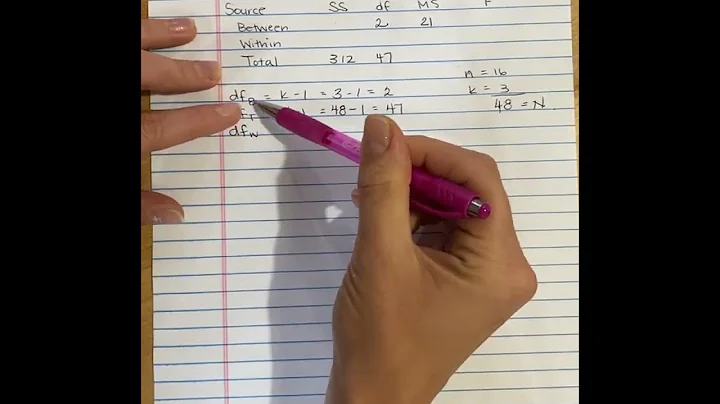 Source SS df MS F
Between 2 21
Within
Total 312 47
n = 16
k = 3
48 = N
df_B = k - 1 = 3 - 1 = 2
1 = 48 - 1 = 47
df_W